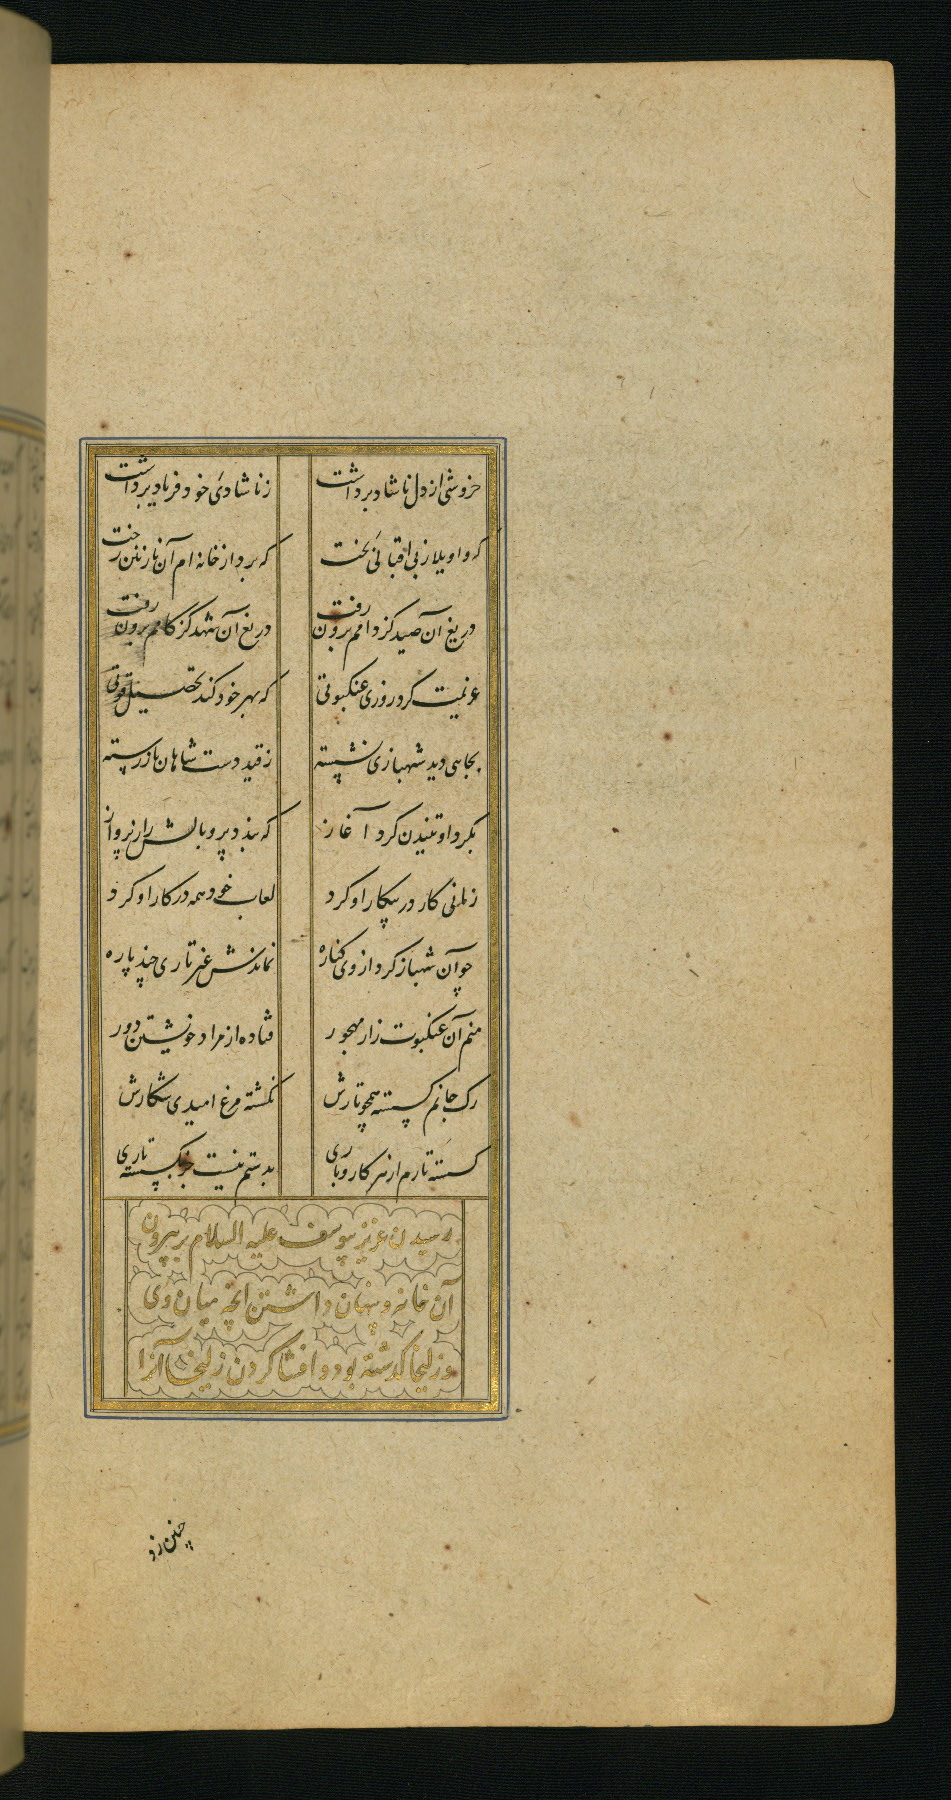 خروشی از دل ناشاد برداشت	ز ناشادی خود فریاد برداشت
که واویلا ز بی اقبالی بخت	که برد از خانه ام آن نازنین رخت
دریغ آن صید کز دامم برون رفت	دریغ آن شهد کز کامم برون رفت
عزیمت کرد روزی عنکبوتی	که بهر خود کند تحصیل قوتی
بجایی دید شهبازی نشسته	ز قید دست شاهان باز رسته
بگرد او تنیدن کرد آغاز	که بندد پر و بالش را ز پرواز
زمانی کار در پیکار او کرد	لعاب خود همه در کار او کرد
چو آن شهباز کرد از وی کناره	نماندش غیر تاری چند پاره
منم آن عنکبوت زار مهجور	فتاده از مراد خویشتن دور
رک جانم کسسته همچو تارش	نکشته مرغ امیدی شکارش
کسسته تارم از هر کار و باری	بدستم نیست جز بکسسته تاری
رسیدن عزیز بیوسف علیه السلام بر بیرون
آن خانه و پنهان داشتن آنچه میان وی
و زلیخا کذشته بود و افشا کردن زلیخا آنرا
چنین زد